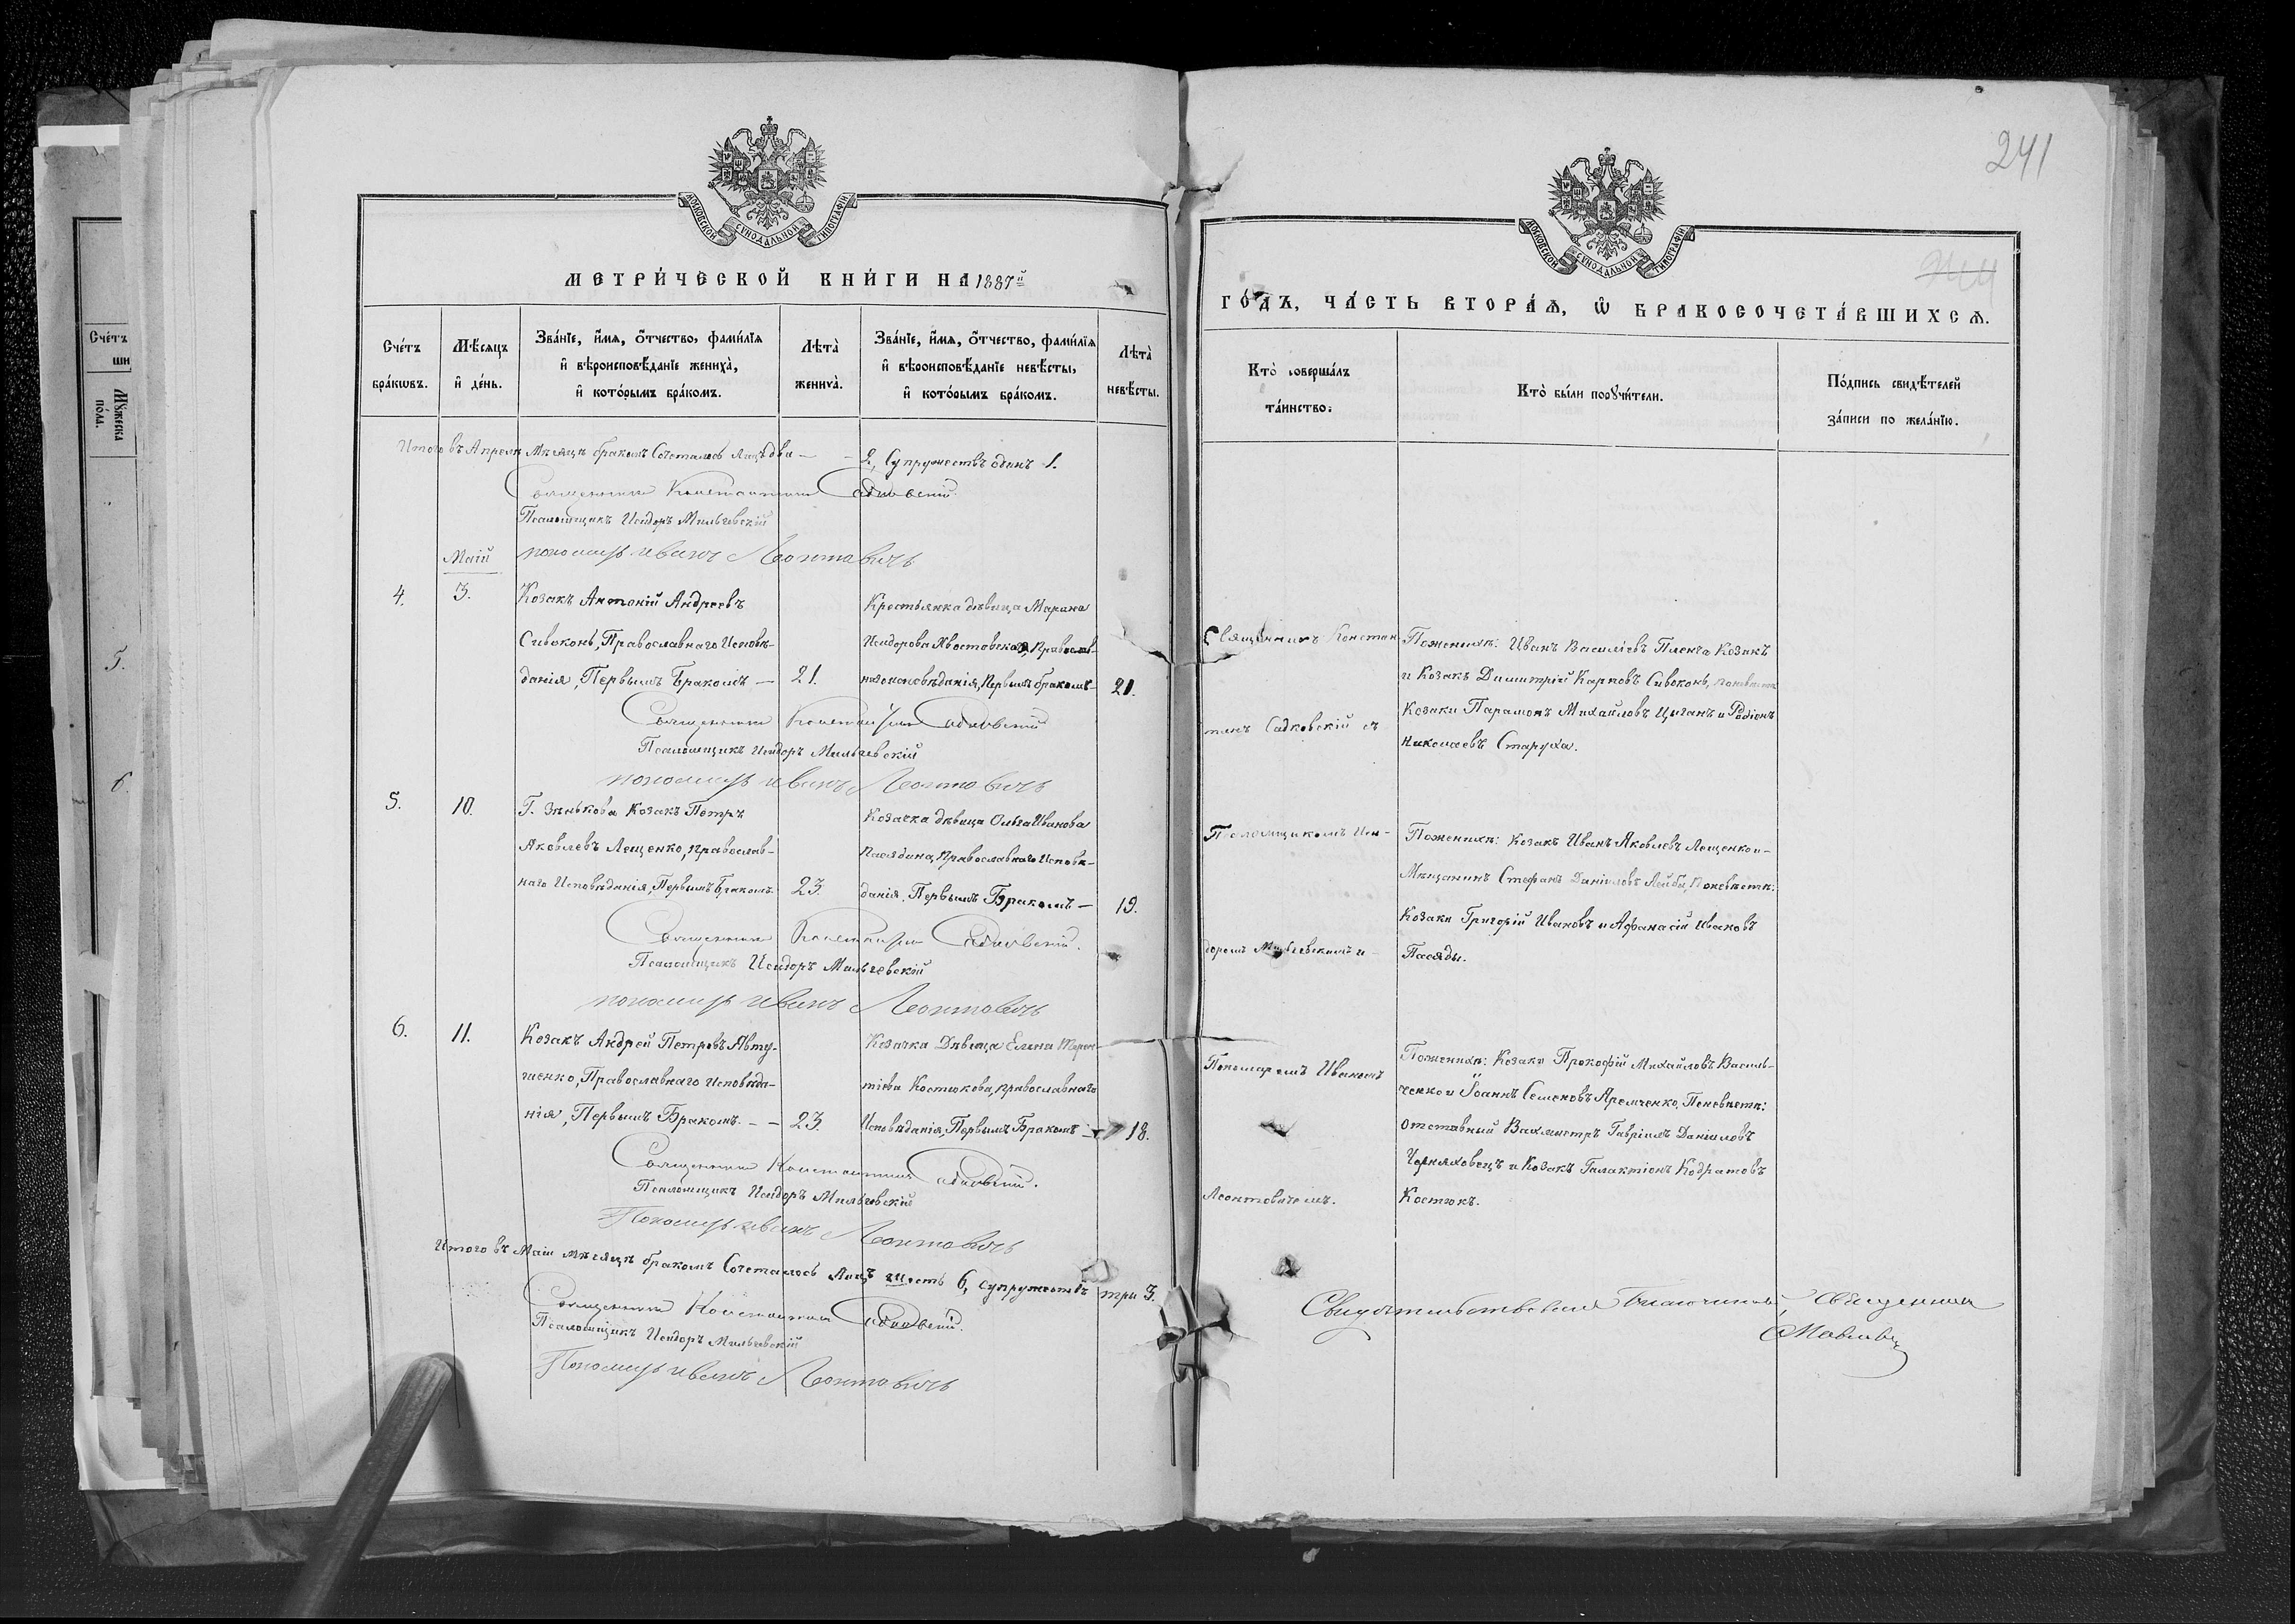 МОСКОВСКОЙ СУНОДАЛЬНОЙ ТИПОГРАФІИ
МЕТРИ́ЧЕСКОЙ КНИ́ГИ НА 1887й
Сче́тъ бра́кѡвъ.
Мѣ́сѧцъ и҆ де́нь.
Зва́нїе, и҆́мѧ, ѻ҆́тчество, фами́лїѧ
и҆ вѣроисповѣ́данїе жениха̀,
и҆ кото́рымъ бра́комъ.
Лѣта̀ жениха̀.
Зва́нїе, и҆́мѧ, ѻ҆́тчество, фами́лїѧ
и҆ вѣроисповѣ́данїе невѣ́сты,
и҆ кото́рымъ бра́комъ.
Лѣта̀ невѣ́сты.
Итого въ Апрелѣ Мѣсяцѣ бракомъ Сочеталось лицъ два — 2, Супружествъ одинъ 1.
Священникъ Константинъ Садковскій.
Псаломщикъ Исидоръ Мильчевскій
Маій
пономарь Иванъ Леонтовичъ
4. 3.
Козакъ Антоній Андреевъ
Сивоконь, Православнаго Исповѣ-
данія, Первымъ Бракомъ — 21.
Крестьянка дѣвица Марина
Исидорова Хвостовская, Православ-
наго исповѣданія, Первымъ бракомъ — 21.
Священникъ Константинъ Садковскій
Псаломщикъ Исидоръ Мильчевскій
пономарь Иванъ Леонтовичъ
5. 10.
Г. Зѣнькова Козакъ Петръ
Яковлевъ Лещенко, православ-
наго Исповѣданія, Первымъ Бракомъ. 23.
Козачка дѣвица Ольга Иванова
Пасядина, Православнаго Исповѣ-
данія, Первымъ Бракомъ — 19.
Священникъ Константинъ Садковскій.
Псаломщикъ Исидоръ Мильчевскій
пономарь Иванъ Леонтовичъ
6. 11.
Козакъ Андрей Петровъ Явту-
шенко, Православнаго Исповѣда-
нія, Первымъ Бракомъ. — — 23
Козачка Дѣвица Елена Терен-
тіева Костюкова, православнаго
Исповѣданія, Первымъ Бракомъ — 18.
Священникъ Константинъ Садковскій.
Псаломщикъ Исидоръ Мильчевскій
Пономарь Иванъ Леонтовичъ
Итого въ Маіи мѣсяцѣ бракомъ Сочеталось Лицъ шесть 6, супружествъ три 3.
Священникъ Константинъ Садковскій.
Псаломщикъ Исидоръ Мильчевскій
Пономарь Иванъ Леонтовичъ
Сче́тъ
ши
Мꙋ́жеска по́ла.
5.
6.
241
244
МОСКОВСКОЙ СУНОДАЛЬНОЙ ТИПОГРАФІИ
ГО́ДЪ, ЧА́СТЬ ВТОРА́Ѧ, Ѡ҆ БРАКОСОЧЕТА́ВШИХСѦ.
Кто̀ соверша́лъ
та́инство.
Кто̀ бы́ли порꙋчи́тели.
По́дпись свидѣ́телей
за́писи по жела́нїю.
Священникъ Констан-
тинъ Садковскій съ
Псаломщикомъ Иси-
доромъ Мильчевскимъ и —
Пономаремъ Иваномъ
Леонтовичемъ.
По женихѣ: Иванъ Василіевъ Пленга Козакъ
и Козакъ Димитрій Карповъ Сивоконь, по невѣстѣ
Козаки Парамонъ Михайловъ Цыганъ и Родіонъ
Николаевъ Старуха.
По женихѣ: Козакъ Иванъ Яковлевъ Лещенко и —
Мѣщанинъ Стефанъ Даніиловъ Лейба, По невѣстѣ:
Козаки Григорій Ивановъ и Афанасій Ивановъ
Пасяды.
По женихѣ: Козаки Прокофій Михайловъ Василь-
ченко и Іоаннъ Семеновъ Яремченко, По невѣстѣ:
Отставный Вахмистръ Гавріилъ Даніиловъ
Черняховецъ и Козакъ Галактіонъ Кодратовъ
Костюкъ.
Свидѣтельствовалъ Благочинный, Священникъ